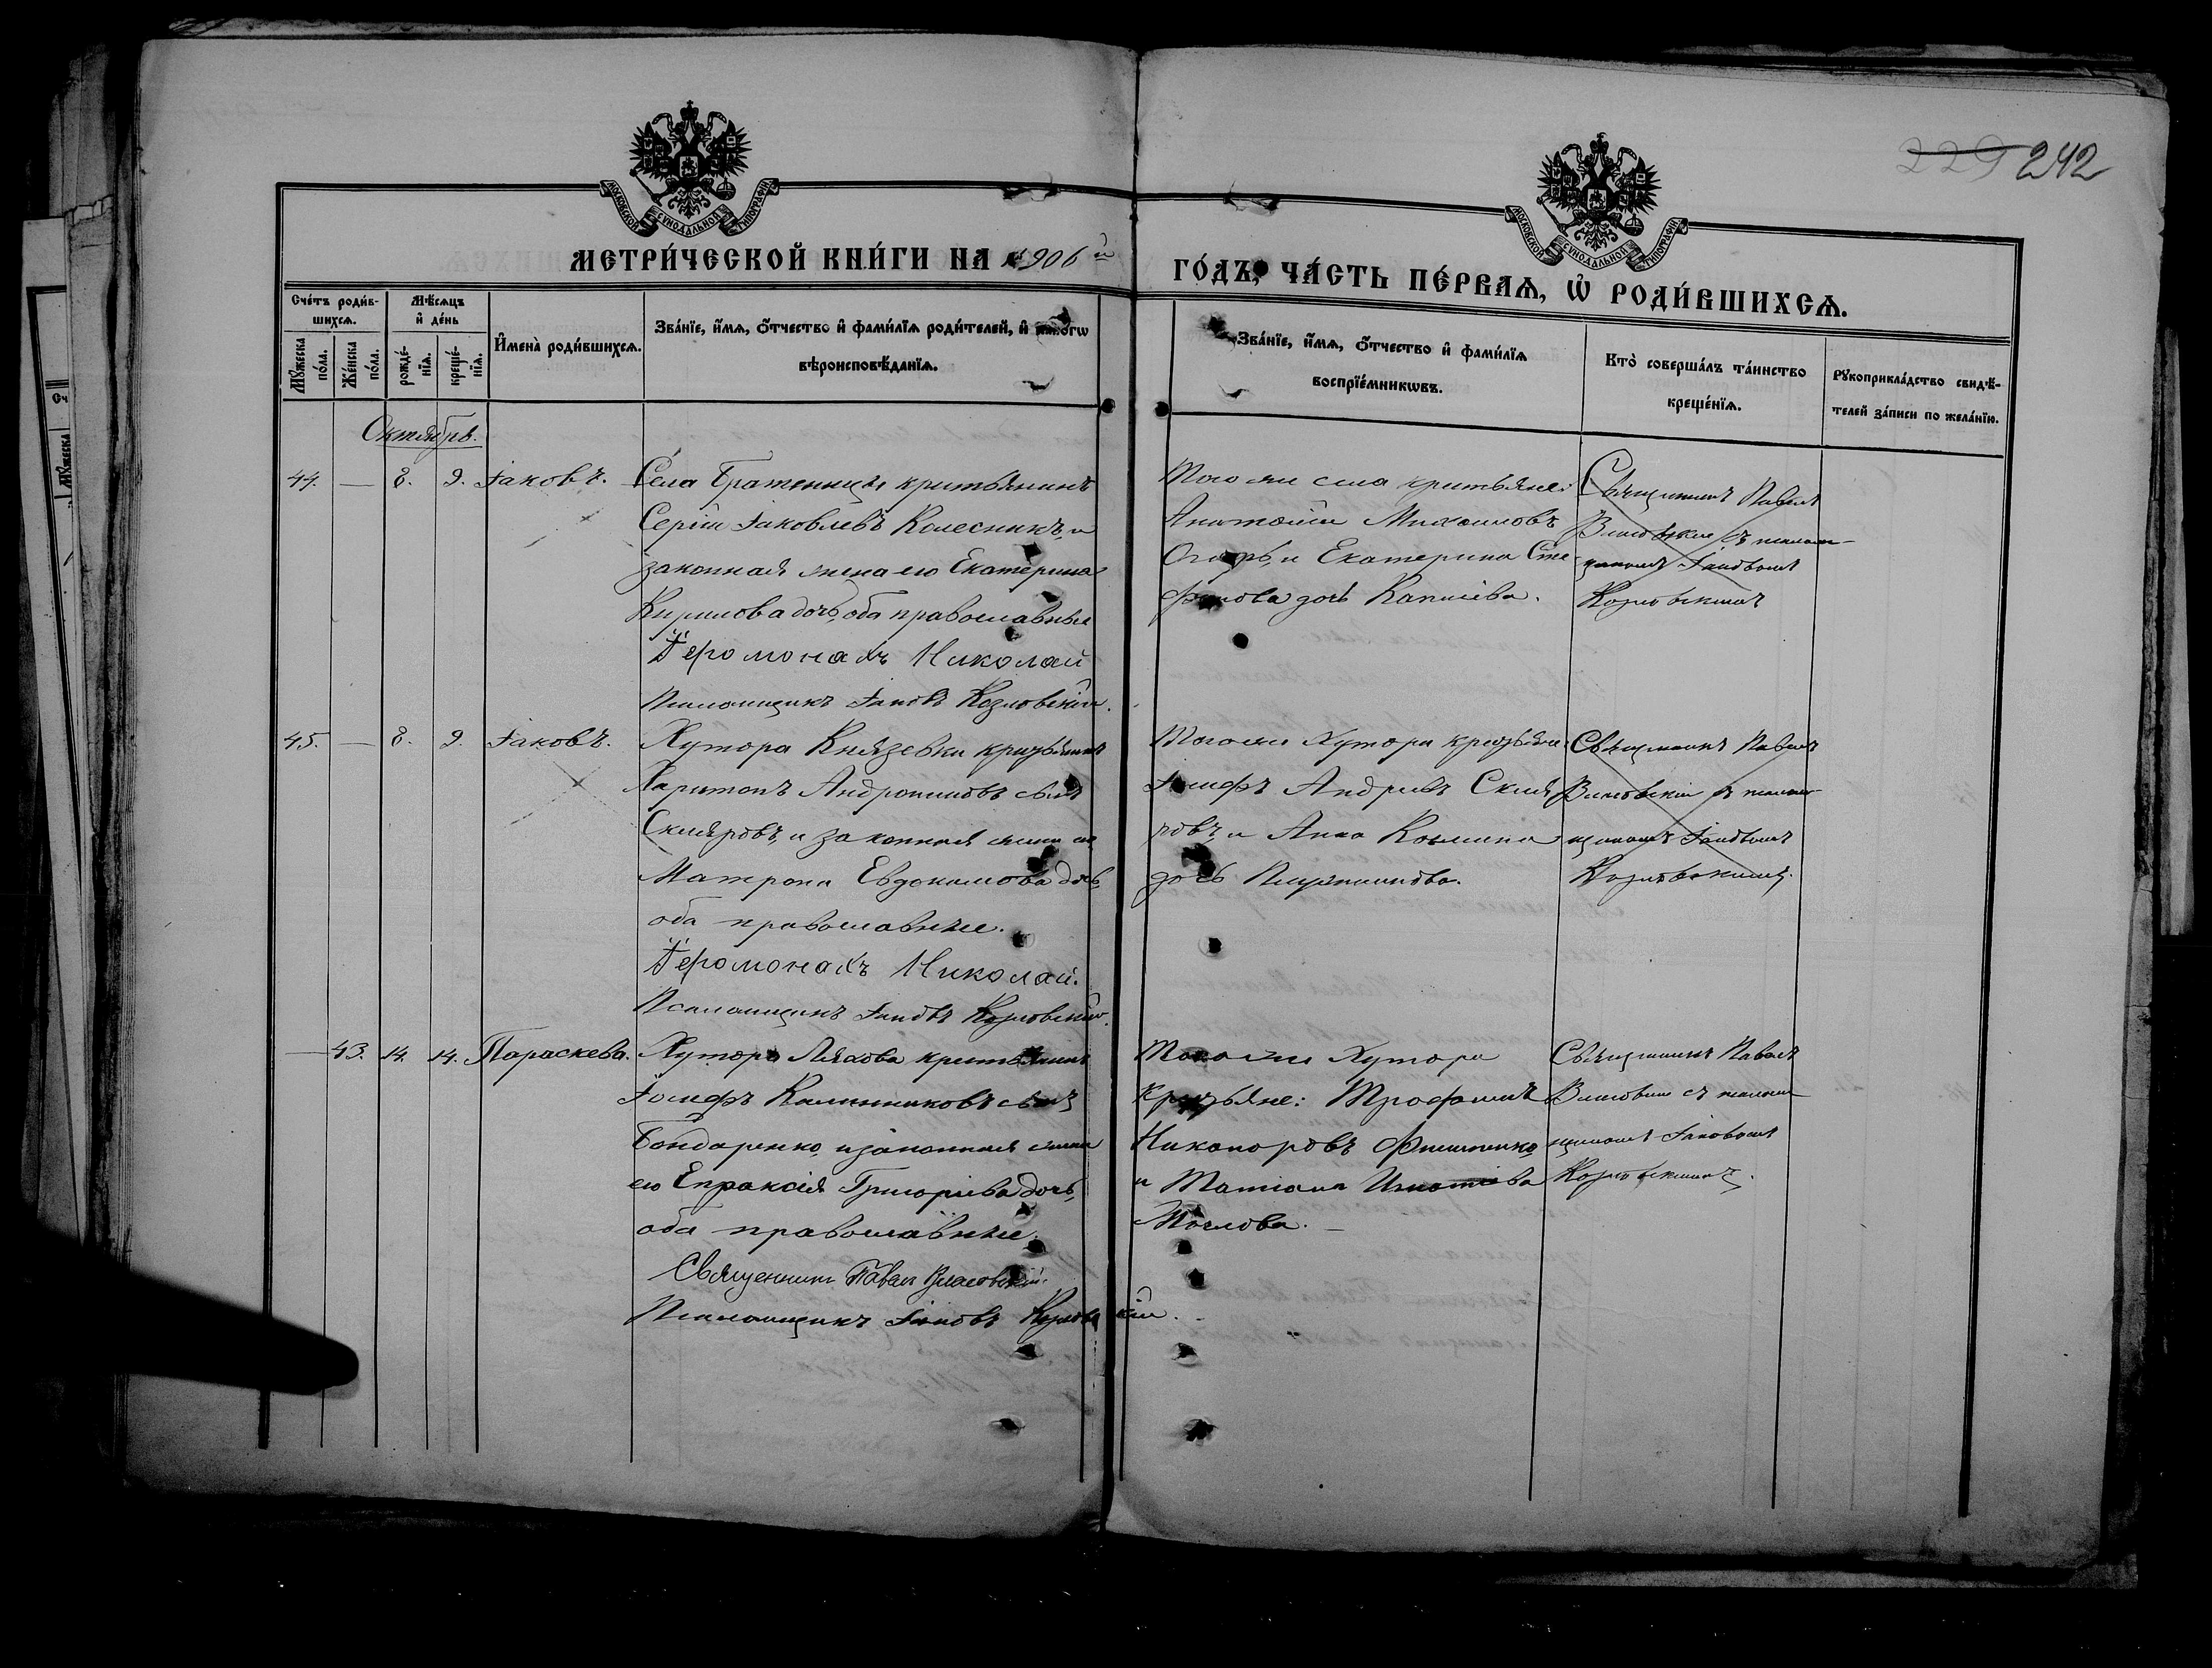 229 242
МОСКОВСКОЙ СѴНОДАЛЬНОЙ ТИПОГРАФІИ
МОСКОВСКОЙ СѴНОДАЛЬНОЙ ТИПОГРАФІИ
МЕТРИ́ЧЕСКОЙ КНИ́ГИ НА 1906 й
ГО́ДЪ, ЧА́СТЬ ПЕ́РВАѦ, Ѡ҆ РОДИ́ВШИХСѦ.
Сче́тъ роди́в-
шихсѧ.
Мꙋ́жеска по́ла.
Же́нска по́ла.
Мѣ́сѧцъ
и҆ де́нь
рожде́-
нїѧ.
креще́-
нїѧ.
И҆мена̀ роди́вшихсѧ.
Зва́нїе, и҆́мѧ, ѻ҆́тчество и҆ фами́лїѧ роди́телей, и҆ како́гѡ
вѣроисповѣ́данїѧ.
Зва́нїе, и҆́мѧ, ѻ҆́тчество и҆ фами́лїѧ
воспрїе́мникѡвъ.
Кто̀ соверша́лъ та́инство
креще́нїѧ.
Рꙋкоприкла́дство свидѣ́-
телей за́писи по жела́нїю.
Октябрь.
44. — 8. 9. Іаковъ.
Села Братеницы крестьянинъ
Сергій Іаковлевъ Колесникъ, и
законная жена его Екатерина
Кирилова дочь, оба православные
Іеромонахъ Николай
Псаломщикъ Іаковъ Козловскій.
Того же села крестьяне:
Анатолій Михаиловъ
Огарь, и Екатерина Сте-
фанова дочь
Священникъ Павелъ
съ псалом-
щикомъ Іаковомъ
Козловскимъ
45. — 8. 9. Іаковъ.
Хутора Князевки крестьянинъ
Харитонъ Андрониковъ сынъ
Скляровъ, и законная жена его
Матрона Евдокимова дочь,
оба православные.
Іеромонахъ Николай.
Псаломщикъ Іаковъ Козловскій.
Того же Хутора крестьяне
Іосифъ Андреевъ Скля-
ровъ, и Анна Косьмина
дочь
Священникъ Павелъ
съ псалом-
щикомъ Іаковомъ
Козловскимъ.
— 43. 14. 14. Параскева.
Хутора Ляхова крестьянинъ
Іосифъ Калинниковъ сынъ
Бондаренко, и законная жена
его Епраксія Григоріева дочь,
оба православные.
Священникъ Павелъ
Псаломщикъ Іаковъ Козловскій.
Того же Хутора
крестьяне: Трофимъ
Никаноровъ Филипенко,
и Татіана Игнатіева
Священникъ Павелъ
съ псалом-
щикомъ Іаковомъ
Козловскимъ.